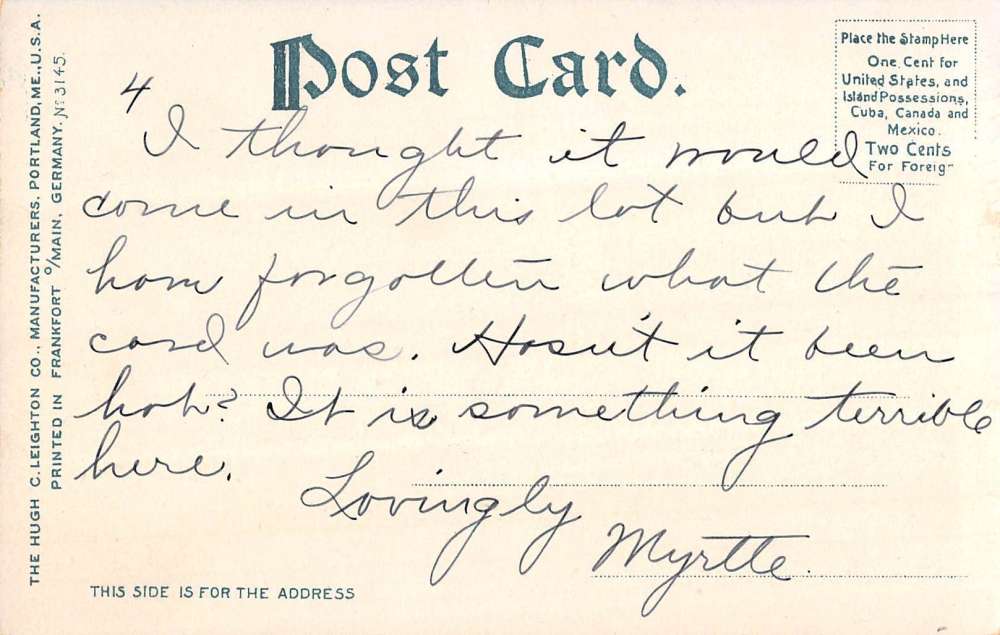 Post Card.
Place the Stamp Here
One Cent for
United States, and
Island Possessions,
Cuba, Canada and
Mexico.
Two Cents
For Foreig
4
I thought it would
come in this lot but I
have forgotten what the
card was. Hasn't it been
hot? It is something terrible
here.
Lovingly
Myrtle.
THIS SIDE IS FOR THE ADDRESS
THE HUGH C. LEIGHTON CO., MANUFACTURERS, PORTLAND, ME., U.S.A.
PRINTED IN FRANKFORT o/MAIN, GERMANY. No 3145.